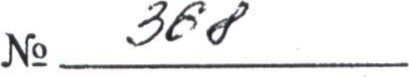 № 368